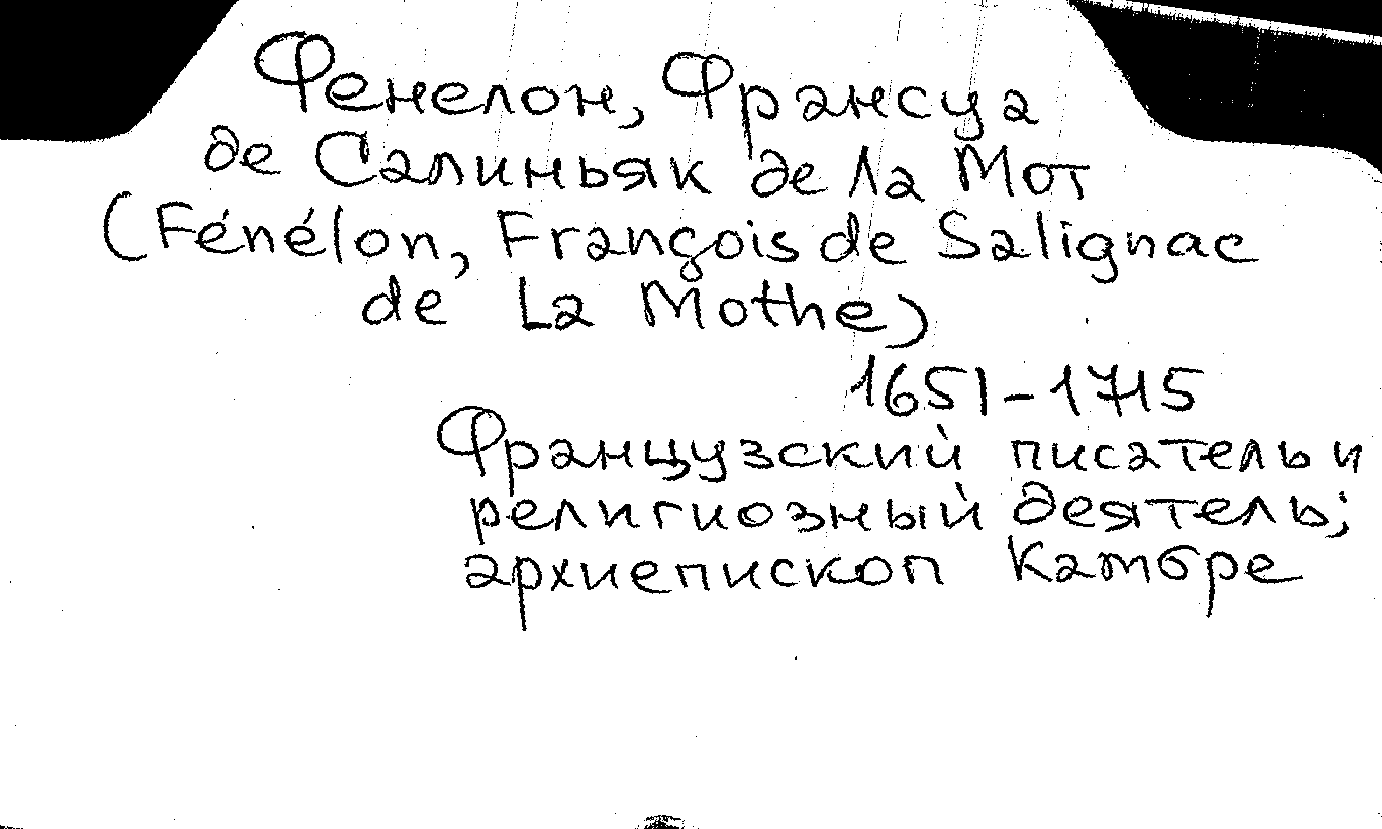 Фенелон, Франсуа
де Салиньяк де ла Мот
(Fénélon, François de Salignac
de La Mothe)
1651-1715
Французский писатель и
религиозный деятель;
архиепископ Камбре